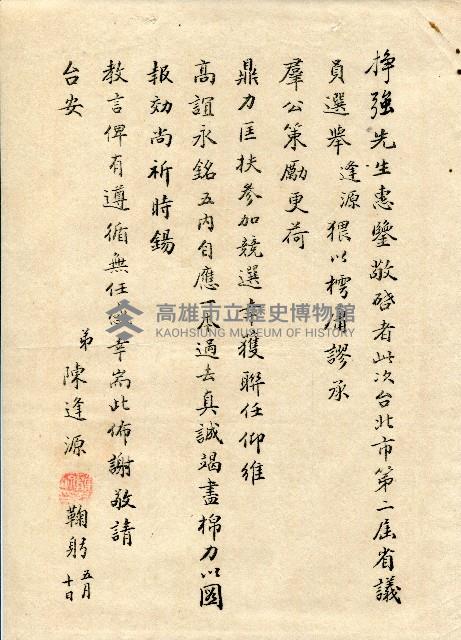 掙強先生惠鑒敬啓者此次台北市第二屆省議
員選舉逢源猥以樗庸謬承
羣公策勵更荷
鼎力匡扶參加競選幸獲聯任仰維
高誼永銘五內自應一本過去真誠竭盡棉力以圖
報効尚祈時錫
教言俾有遵循無任幸耑此佈謝敬請
台安
弟陳逢源鞠躬五月十日
高雄市立歷史博物館
KAOHSIUNG MUSEUM OF HISTORY